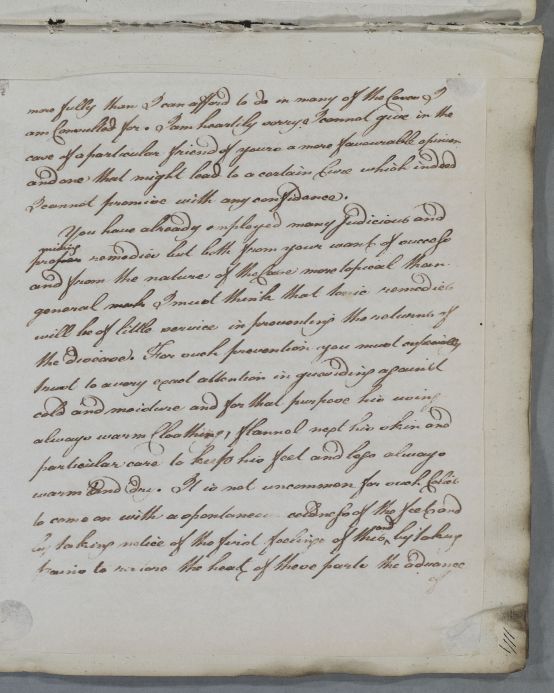 more fully than I can afford to do in many of the Cases I
am Consulted for. I am heartily sorry I cannot give in the
case of a particular friend of yours a more favourable opinion
and one that might lead to a certain Cure which indeed
I cannot promise with any confidence.
You have already employed many Judicious and
proper remedies but both from your want of success
and from the nature of the Case more topical than
general I must think that tonic remedies
will be of little service in preventing the returns of
the disease. For such prevention you must especially
trust to a very exact attention in guarding against
cold and moisture and for that purpose his using
always warm Cloathing, flannel next his skin and
particular care to keep his feet and legs always
warm and dry. It is not uncommon for such Colics
to come on with a spontaneous coldness of the feet and
by taking notice of the first feelings of this, and by taking
pains to the heat of these parts the advance
of